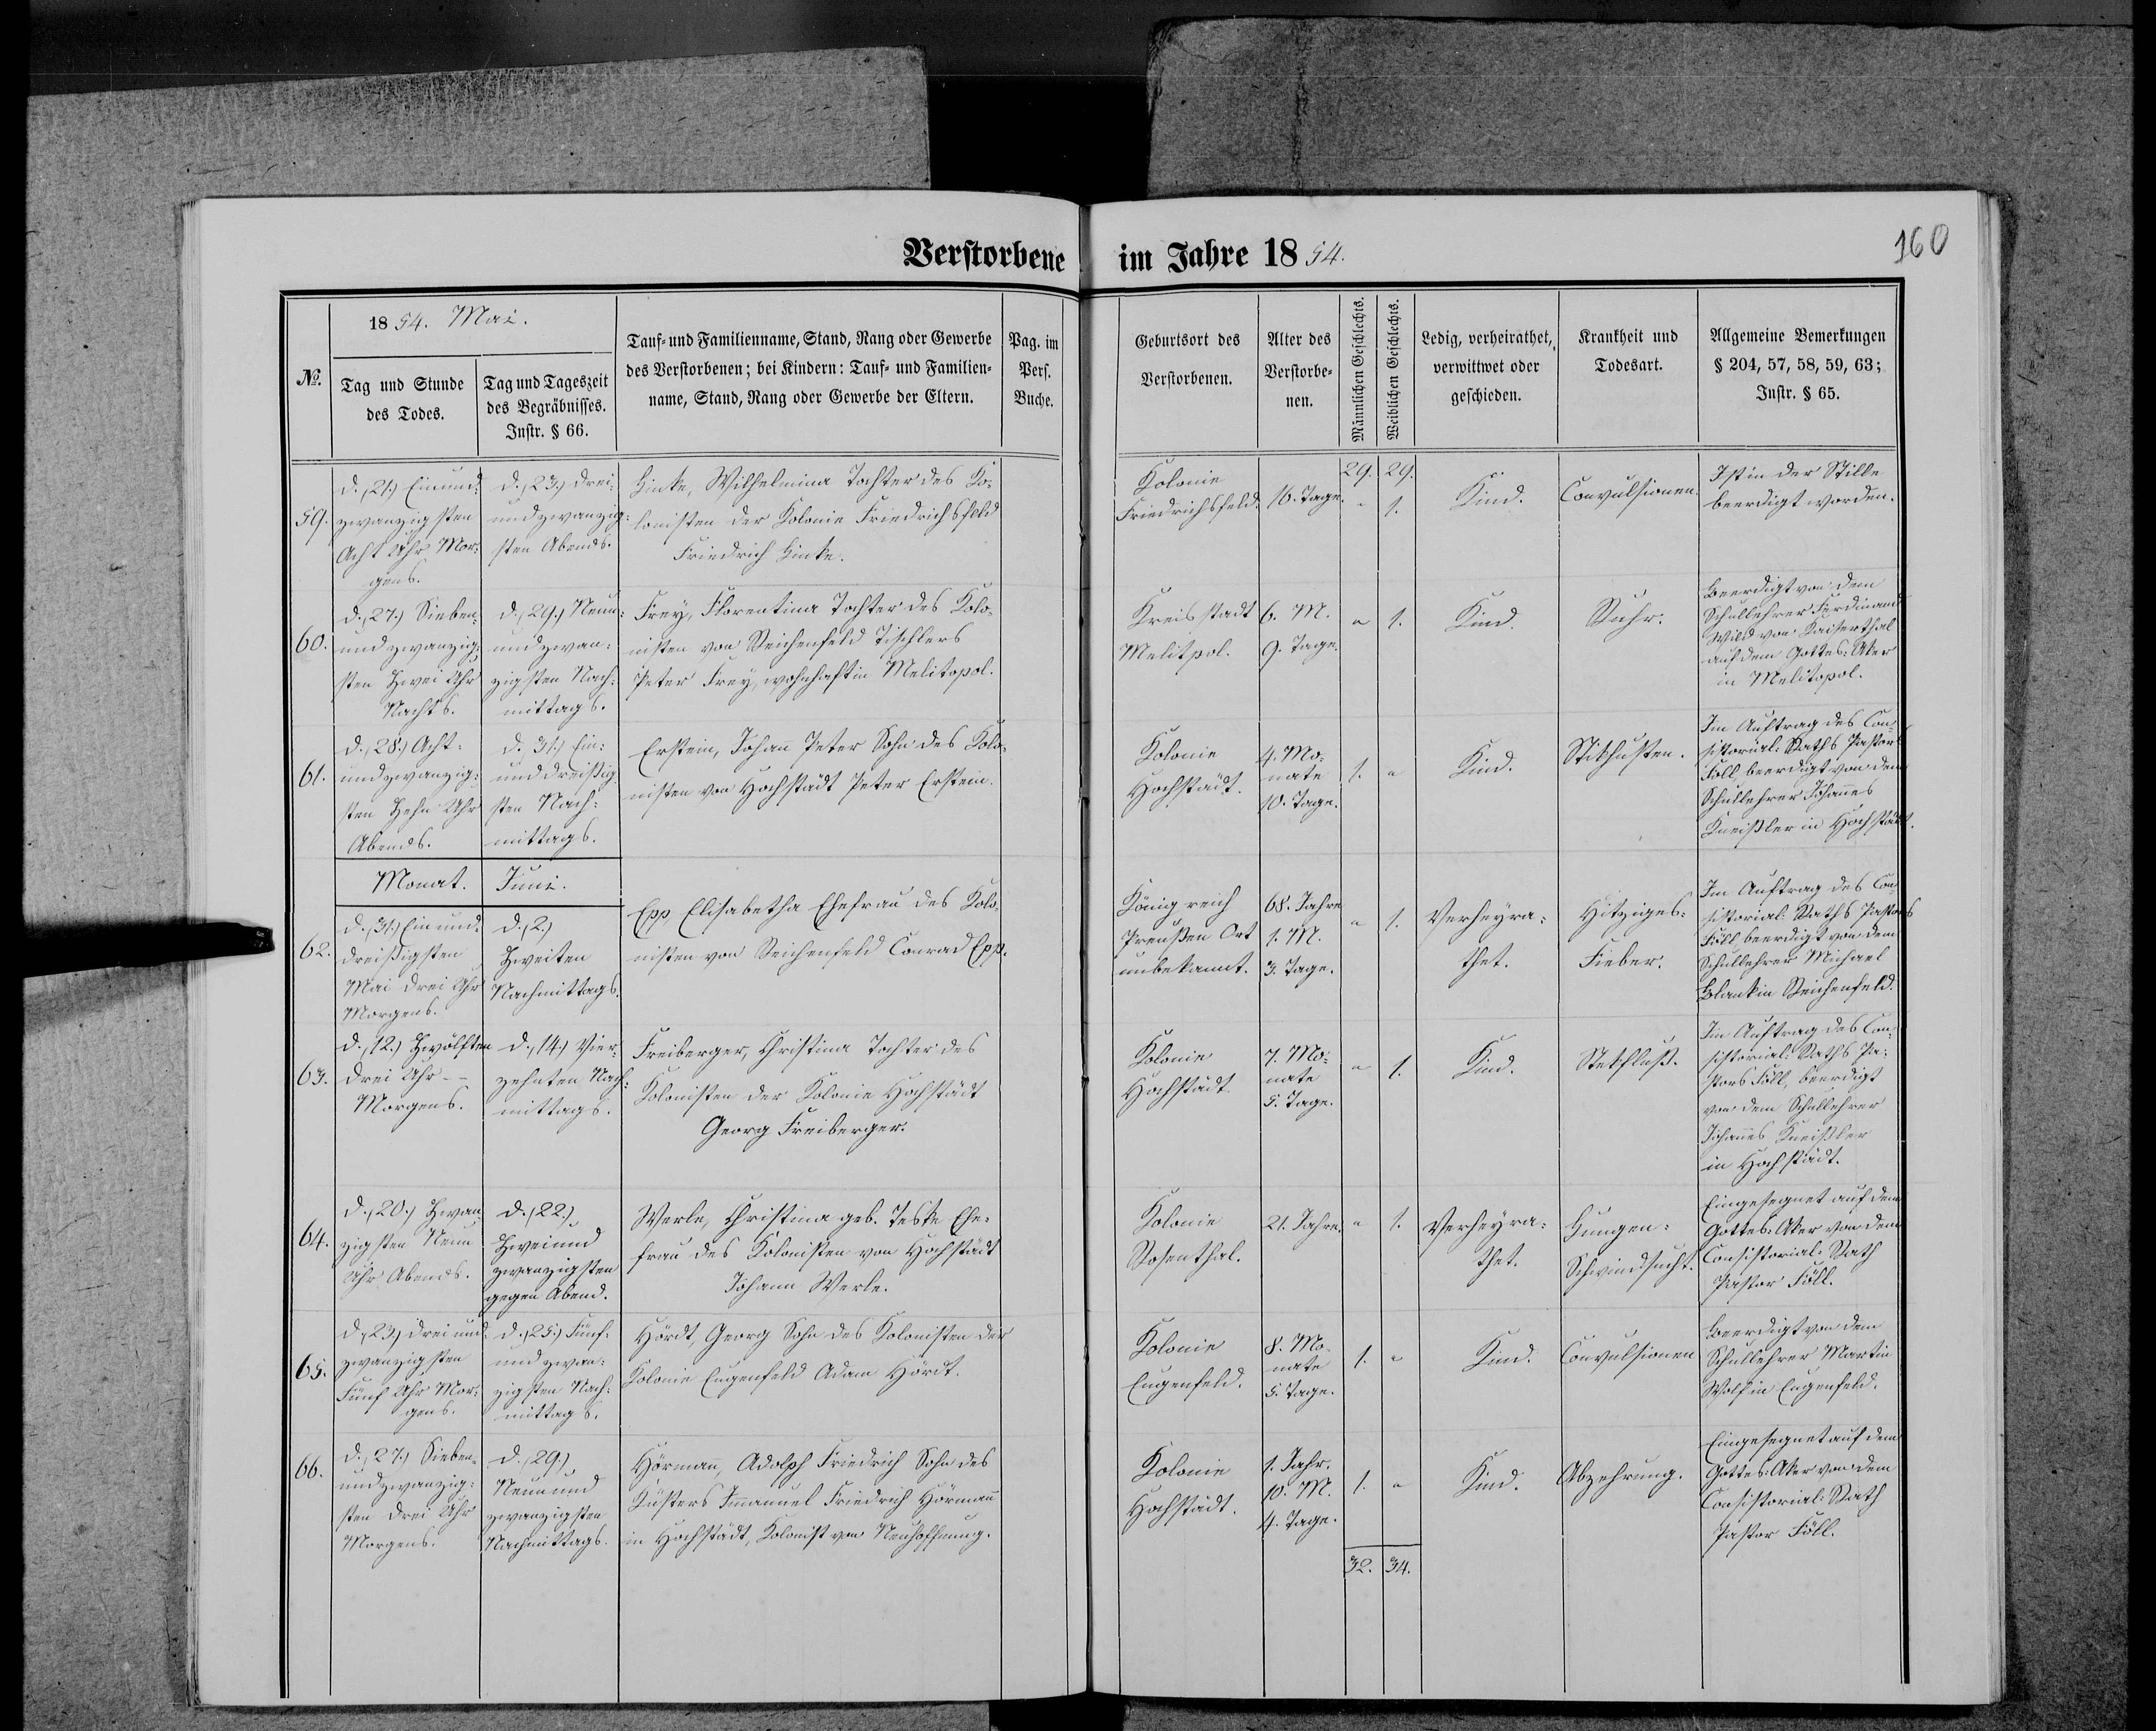 Verstorbene im Jahre 1854.
160
№.
1854. Mai.
Tag und Stunde
des Todes.
Tag und Tageszeit
des Begräbnisses.
Instr. § 66.
Tauf- und Familienname, Stand, Rang oder Gewerbe
des Verstorbenen; bei Kindern: Tauf- und Familien-
name, Stand, Rang oder Gewerbe der Eltern.
Pag. im
Pers.
Buche.
Geburtsort des
Verstorbenen.
Alter des
Verstorbe-
nen.
Männlichen Geschlechts.
Weiblichen Geschlechts.
Ledig, verheirathet,
verwittwet oder
geschieden.
Krankheit und
Todesart.
Allgemeine Bemerkungen
§ 204, 57, 58, 59, 63;
Instr. § 65.
29. 29.
59.
d. (21.) Einund-
zwanzigsten
Acht Uhr Mor-
gens.
d. (23.) Drei-
undzwanzig-
sten Abends.
Hinke, Wilhelmina Tochter des Ko-
lonisten der Kolonie Friedrichsfeld
Friedrich Hinke.
Kolonie
Friedrichsfeld.
16. Tage.
" 1.
Kind.
Convulsionen.
Ist in der Stille
beerdigt worden.
60.
d. (27.) Sieben-
undzwanzig-
sten Zwei Uhr
Nachts.
d. (29.) Neun-
undzwan-
zigsten Nach-
mittags.
Frey, Florentina Tochter des Kolo-
nisten von Reichenfeld Tischlers
Peter Frey, wohnhaft in Melitopol.
Kreisstadt
Melitpol.
6. M.
9. Tage.
" 1.
Kind.
Ruhr.
Beerdigt von dem
Schullehrer Ferdinand
Wild von Kaiserthal
auf dem Gottes-Aker
in Melitopol.
61.
d. (28.) Acht-
undzwanzig-
sten Zehn Uhr
Abends.
d. 31.) Ein-
unddreißig
sten Nach-
mittags.
Erstein, Johann Peter Sohn des Kolo-
nisten von Hochstädt Peter Erstein.
Kolonie
Hochstädt.
4. Mo-
nate
10. Tage.
1. "
Kind.
Stikhusten.
Im Auftrag des Con-
sistorial-Raths Pastors
Föll beerdigt von dem
Schullehrer Johannes
Kneißler in Hochstädt.
Monat. Juni.
62.
d. (31.) Einund-
dreißigsten
Mai Drei Uhr
Morgens.
d. (2.)
Zweiten
Nachmittags.
Epp, Elisabetha Ehefrau des Kolo-
nisten von Reichenfeld Conrad Epp.
Königreich
Preußen Ort
unbekannt.
68. Jahre
1. M.
3. Tage.
" 1.
Verheyra-
thet.
Hitziges-
Fieber.
Im Auftrag des Con-
sistorial-Raths Pastors
Föll beerdigt von dem
Schullehrer Michael
Blank in Reichenfeld.
63.
d. (12.) Zwölften
Drei Uhr --
Morgens.
d. (14.) Vier-
zehnten Nach-
mittags.
Freiberger, Christina Tochter des
Kolonisten der Kolonie Hochstädt
Georg Freiberger.
Kolonie
Hochstädt.
7. Mo-
nate
5. Tage.
" 1.
Kind.
Stekfluß.
Im Auftrag des Con-
sistorial-Raths Pa-
stors Föll, beerdigt
von dem Schullehrer
Johannes Kneißler
in Hochstädt.
64.
d. (20.) Zwan-
zigsten Neun
Uhr Abends.
d. (22.)
Zweiund
zwanzigsten
gegen Abend.
Werle, Christina geb. Teske Ehe-
frau des Kolonisten von Hochstädt
Johann Werle.
Kolonie
Rosenthal.
21. Jahre.
" 1.
Verheyra-
thet.
Lungen-
Schwindsucht.
Eingesegnet auf dem
Gottes-Aker von dem
Consistorial-Rath
Pastor Föll.
65.
d. (23.) Dreiund-
zwanzigsten
Fünf Uhr Mor-
gens.
d. (25.) Fünf-
undzwan-
zigsten Nach-
mittags.
Hördt, Georg Sohn des Kolonisten der
Kolonie Eugenfeld Adam Hördt.
Kolonie
Eugenfeld.
8. Mo-
nate
5. Tage.
1. "
Kind.
Convulsionen
Beerdigt von dem
Schullehrer Martin
Wolf in Eugenfeld.
66.
d. (27.) Sieben-
undzwanzig-
sten Drei Uhr
Morgens.
d. (29.)
Neunund
zwanzigsten
Nachmittags.
Hörmann, Adolph Friedrich Sohn des
Küsters Immanuel Friedrich Hörmann
in Hochstädt, Kolonist von Neuhoffnung.
Kolonie
Hochstädt.
1. Jahr.
10. M.
4. Tage.
1. "
Kind.
Abzehrung.
Eingesegnet auf dem
Gottes-Aker von dem
Consistorial-Rath
Pastor Föll.
32. 34.